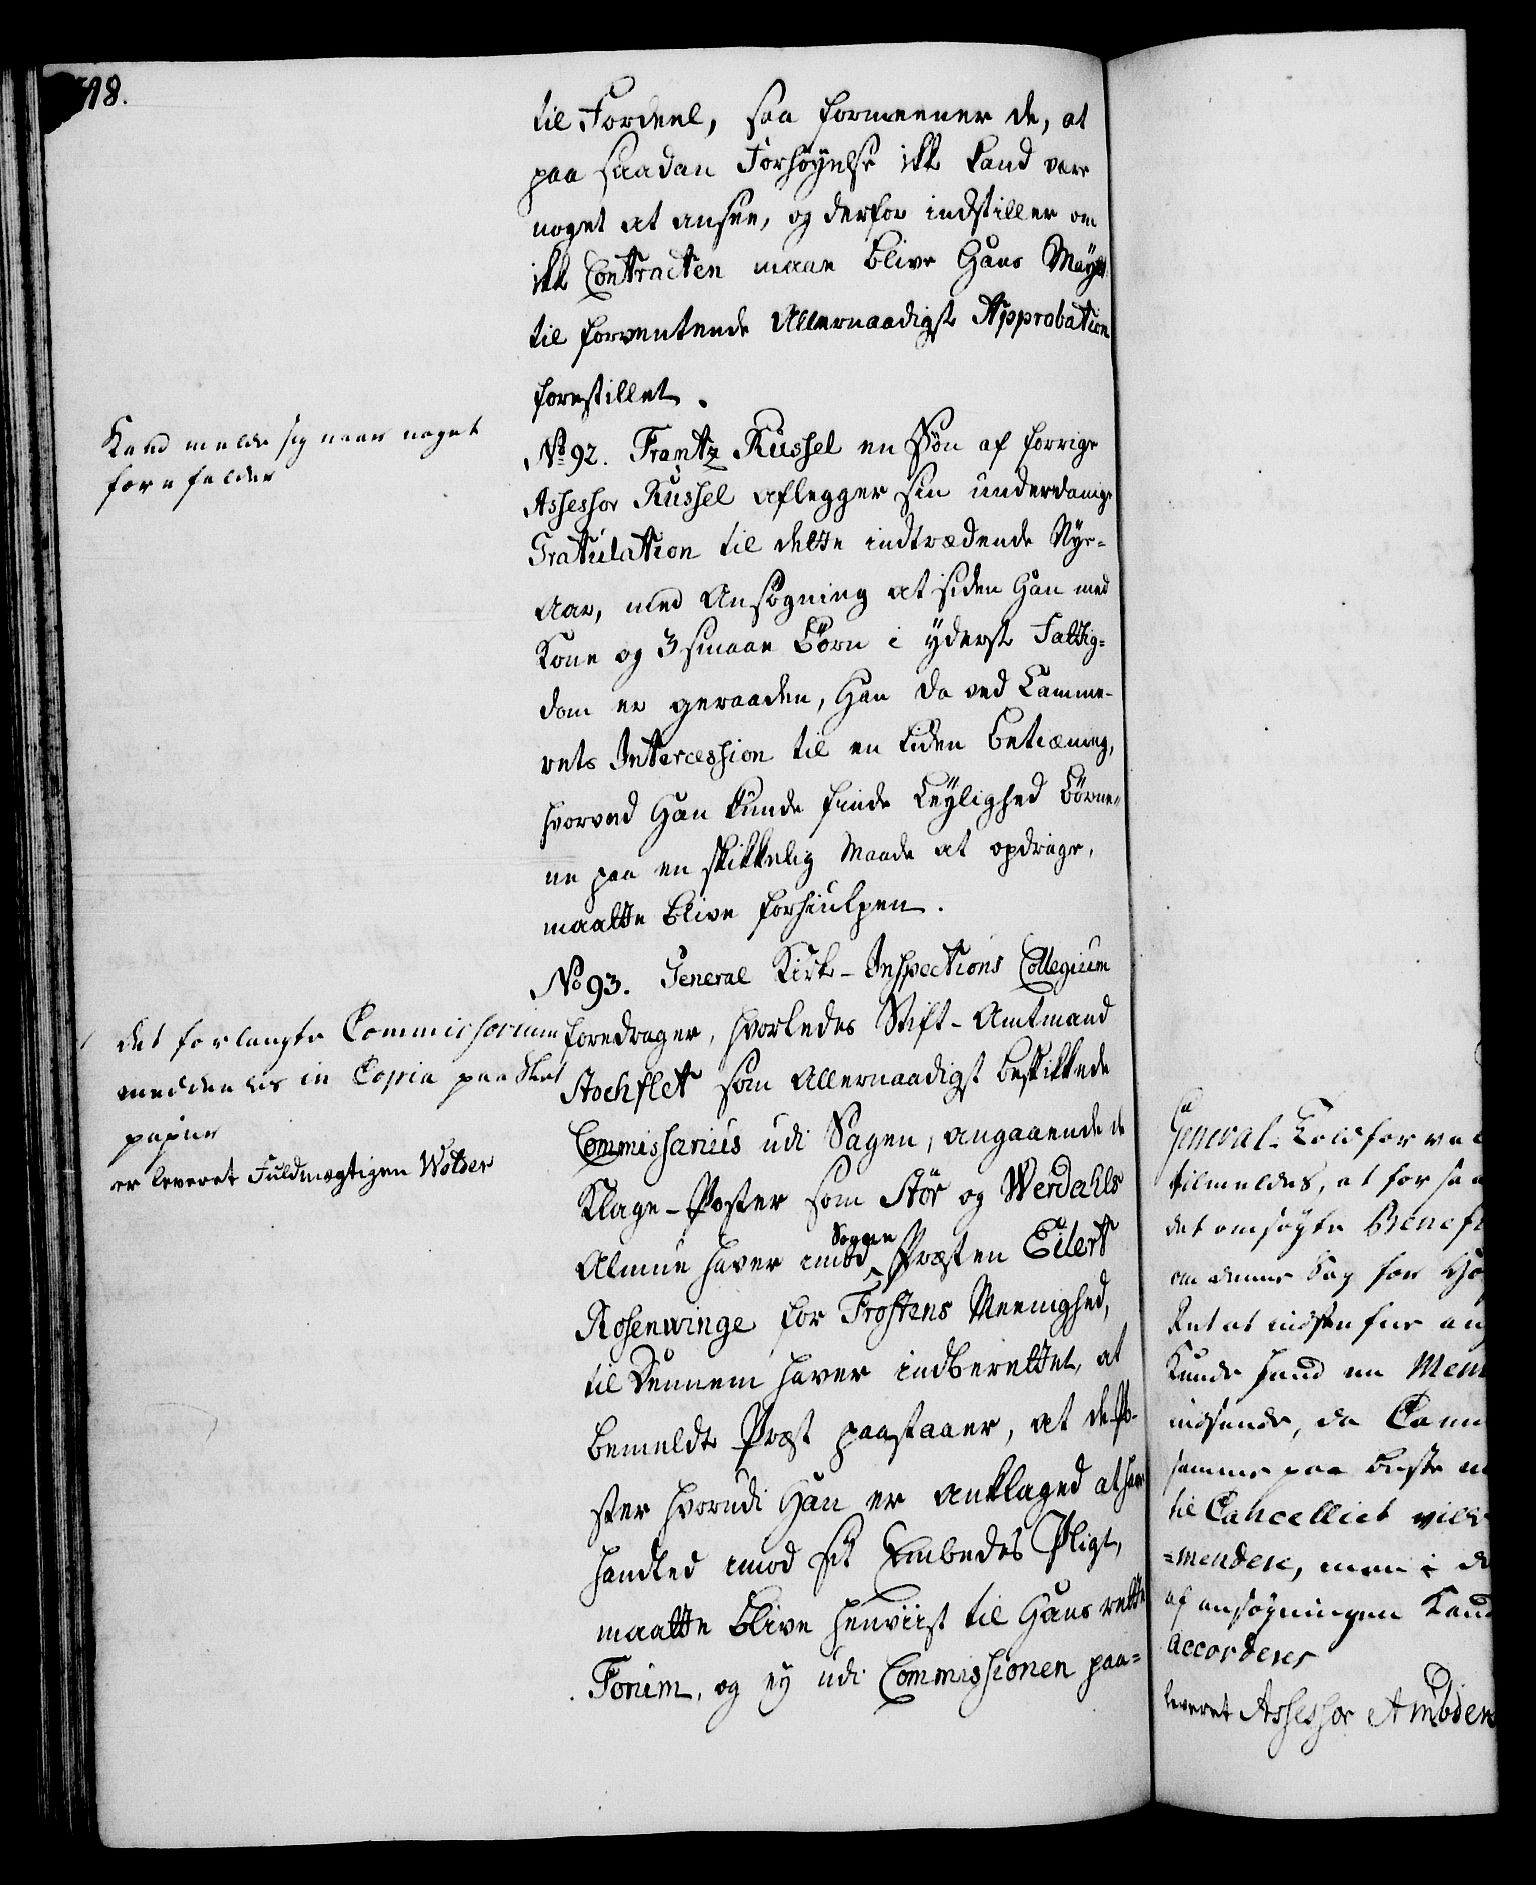 118.
til Fordeel, saa formeener de, at
paa saadan Forhøyelse ikke kand være
noget at ansee, og derfor indstiller om
ikke Contracten maae blive Hans Mayst
til forventende Allernaadigst Approbation
forestillet.
Kand melde sig naar noget
forefalder
No 92. Frantz Russel en Søn af forrige
Assessor Russel aflegger sin underdanige
Gratulation til dette indtrædende Nye-
Aar, med Ansøgning at siden Han med
Kone og 3 smaae Børn i yderst Fattig-
dom er geraaden, Han da ved Camme-
rets Intercession til en liden betiæning,
hvorved Han kunde finde Leylighed Børne-
ne paa en skikkelig Maade at opdrage,
maatte blive forhiulpen.
No 93. General Kirke-Inspections Collegium
foredrager, hvorledes Stift-Amtmand
Stochflet som Allernaadigst beskikkede
Commissarius udi Sagen, angaaende de
Klage-Poster som Stør og Werdahls
Almue haver imod Sogne Præsten Eilert
Rosenwinge for Frostens Meenighed,
til Dennem haver indberettet, at
bemeldte Præst paastaaer, at de Po-
ster hvorudi Han er anklaged at have
handled imod sit Embedes Pligt,
maatte blive henviist til Hans rette
Forum, og ey udi Commissionen paa-
det forlangte Commissorium
meddeeles in Copia paa slet
papiir
er leveret Fuldmægtigen Wolder
General-Toldforval
tilmeldes, at for saa
det ansøgte Benefi
om denne Sag for Hø
Ret at indstefne an
Kunde hand en Mem
indsende, da Cam
samme paa beste m
til Cancelliet vilde
=mendere, men i d
af ansøgningen Kand
accorderes
leveret Assessor Ambders